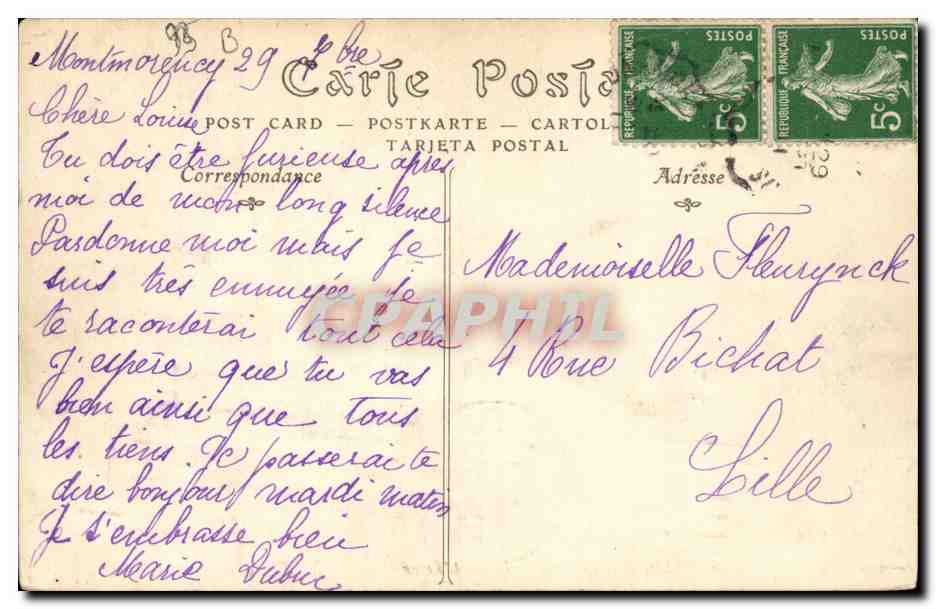 95 B
Montmorency 29 7bre
Carte Posta
Chère Louise
POST CARD — POSTKARTE — CARTOL
TARJETA POSTAL
Correspondance
Tu dois être furieuse après
moi de mon long silence
Pardonne moi mais je
suis très ennuyée je
te raconterai tout cela
J'espère que tu vas
bien ainsi que tous
les tiens. Je passerai te
dire bonjour mardi matin
Je t'embrasse bien
Marie Dubuc
Adresse
Mademoiselle Fleurynck
4 Rue Bichat
Lille
REPUBLIQUE FRANÇAISE
POSTES
5c
REPUBLIQUE FRANÇAISE
POSTES
5c
CPAPHIL